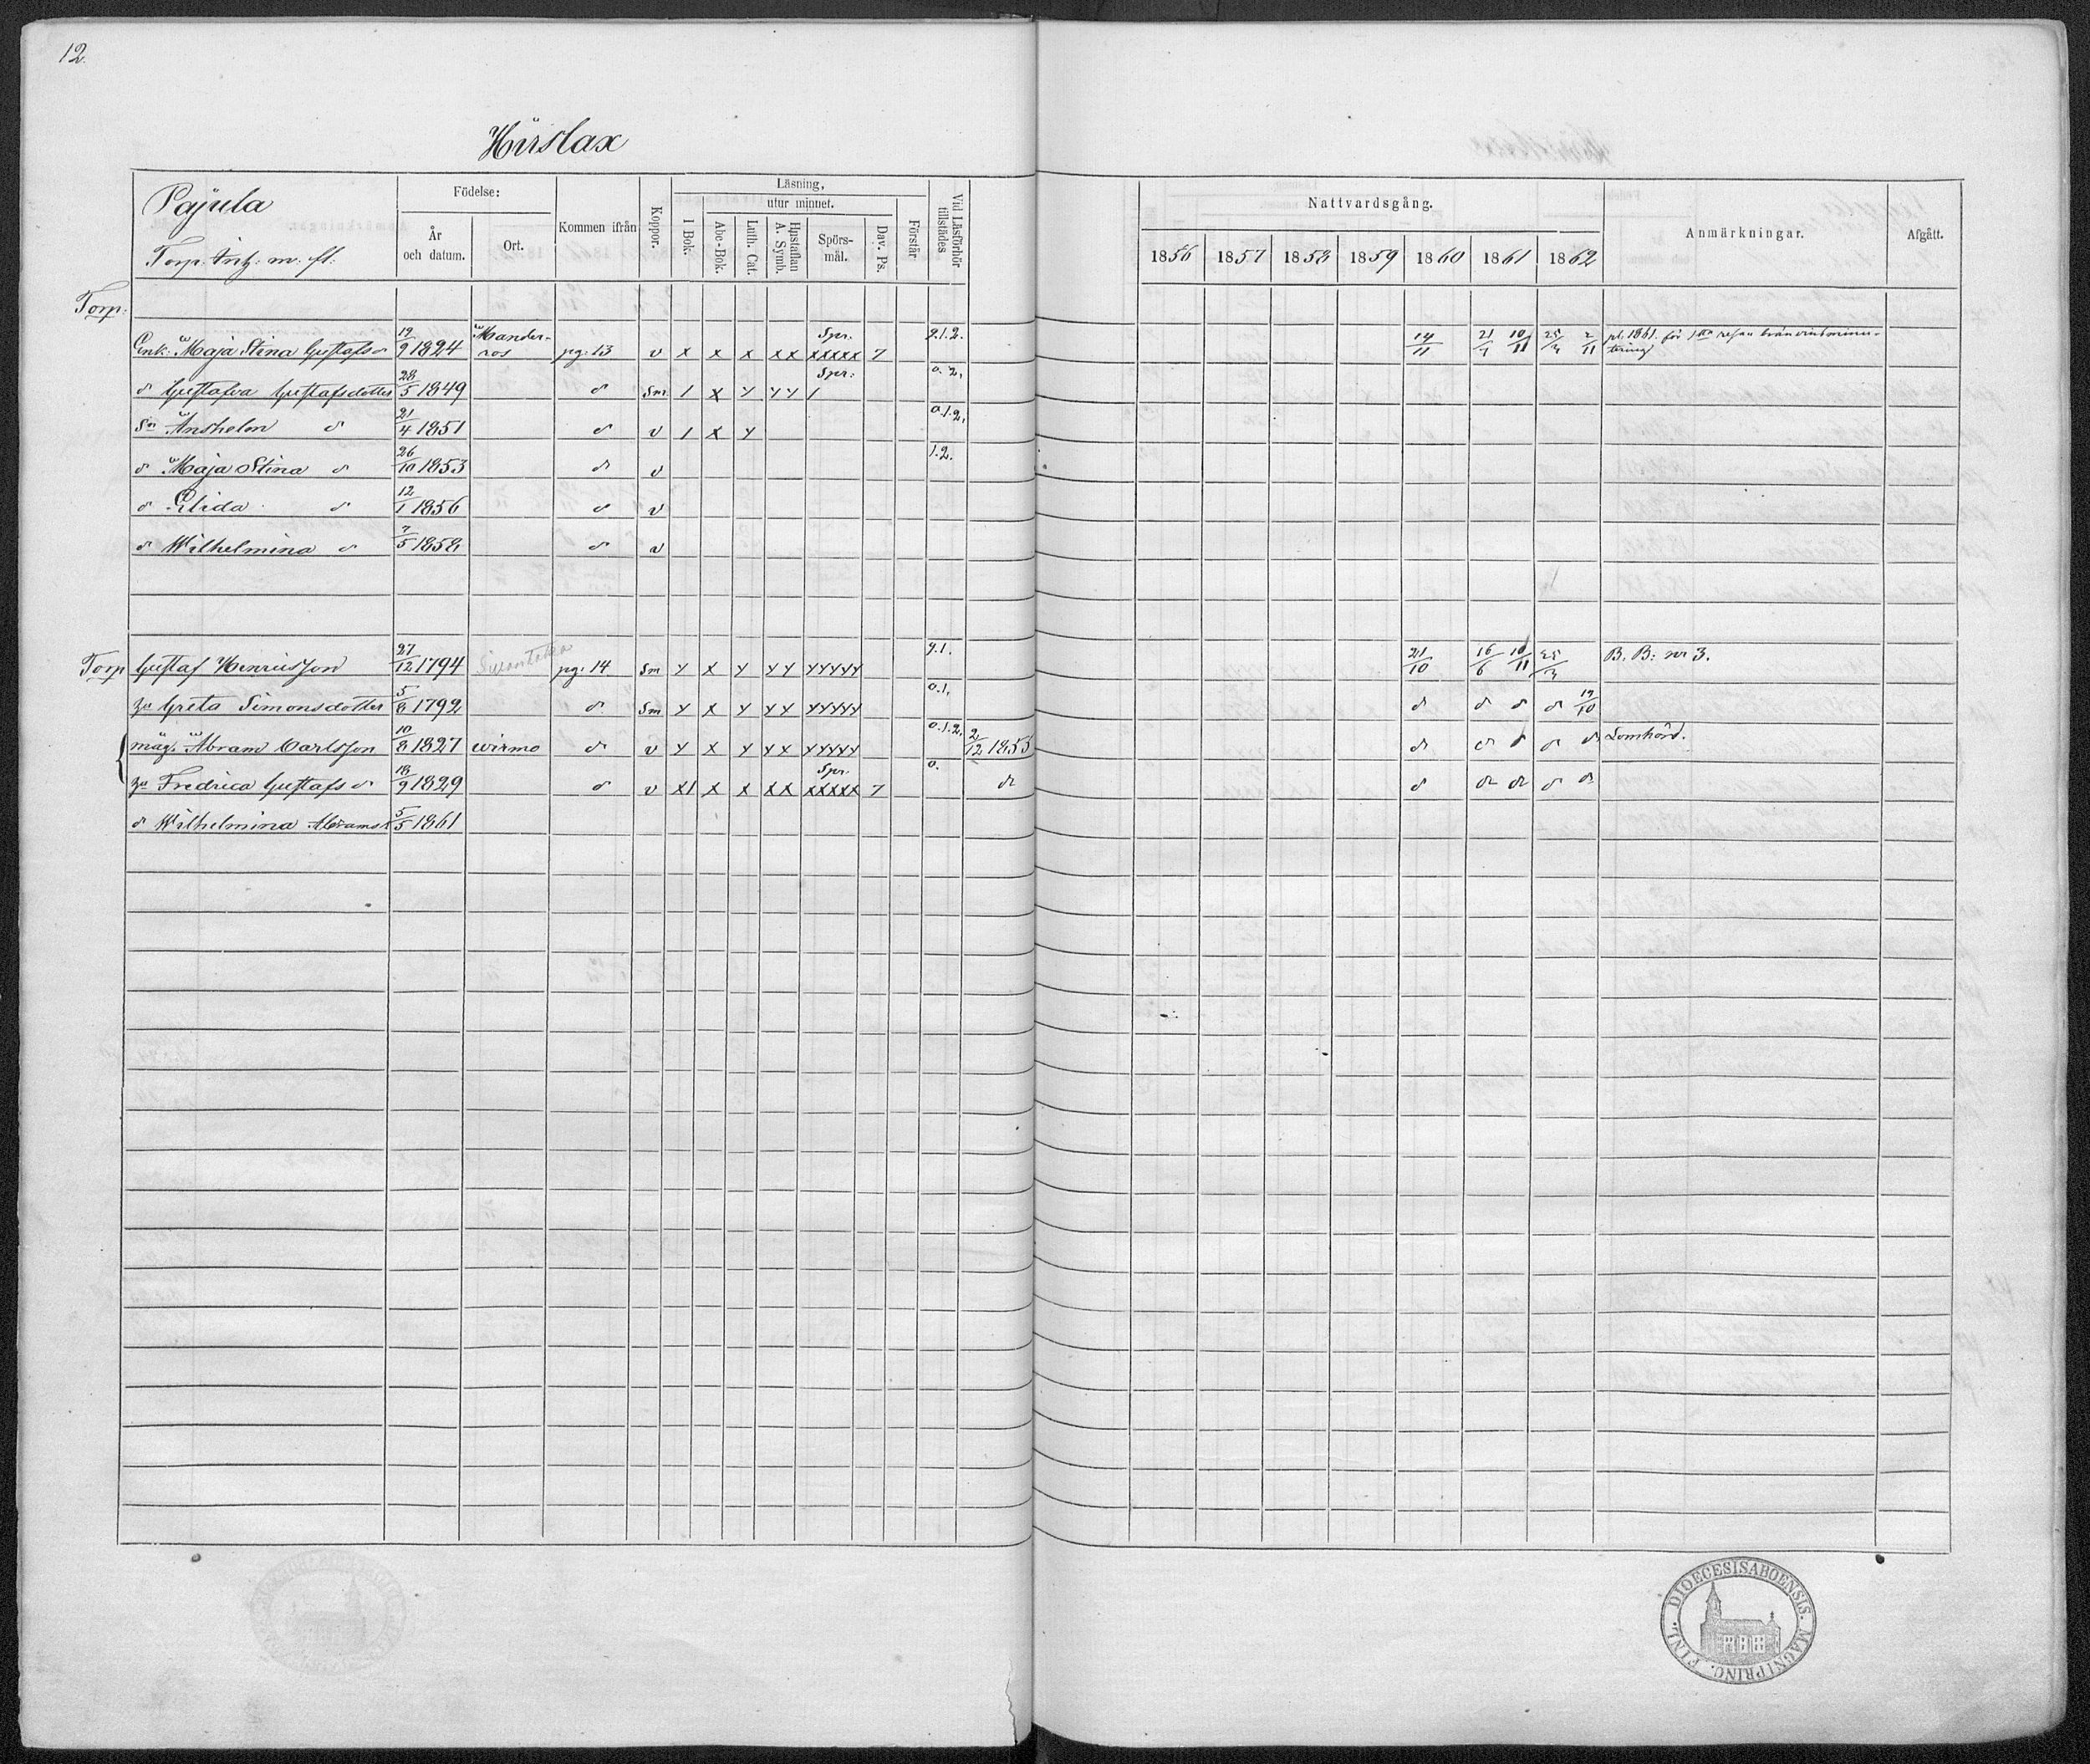 12.
Hirslax
Pajula
Torp. Inh: m. fl.
Födelse:
År och datum.
Ort.
Kommen ifrån
Koppor.
Läsning,
utur minnet.
I Bok.
Abc-Bok.
Luth. Cat.
Hustaflan A. Symb.
Spörs-mål.
Dav. Ps.
Förstår
Vid Läsförhör tillstädes
Nattvardsgång.
1856 1857 1858 1859 1860 1861 1862
Anmärkningar.
Afgått.
Torp:
Enk: Maja Stina Gustafs d 19/9 1824 pg: 13 v x x x xx Spr. xxxxx 7 2.1.2. 14/11 10/11 2/11 pl. 1861. för 1sta resan
d Gustafva Gustafsdotter 28/5 1849 d Sm 1 x y yy Spr: 1 0. 2.
Sn Anshelm d 21/4 1851 d v 1 x y 0.1.2.
d Maja Stina d 26/10 1853 d v 1.2.
d Elida d 12/1 1856 d v
d Wilhelmina d 7/5 1858 d v
Torp Gustaf Henricsson 27/12 1794 pg: 14 Sm y x y yy yyyyy 21/10 16/6 10/11 B. B: nr 3.
Greta Simonsdotter 1792 d Sm y x y yy yyyyy 0.1. d d d d 19/10
måg. Abram Carlsson 10/8 1827 Wirmo d v y x y yx yyyyy 0.1.2. 2/12 1855 d d d d d Lomhörd.
Fredrica Gustafs d 18/9 1829 d v x1 x x xx Spr. xxxxx 7 0. d d d d d d
d Wilhelmina Abrams d 5/5 1861
DIOECESIS ABOENSIS. MAGNI PRINC. FINL.